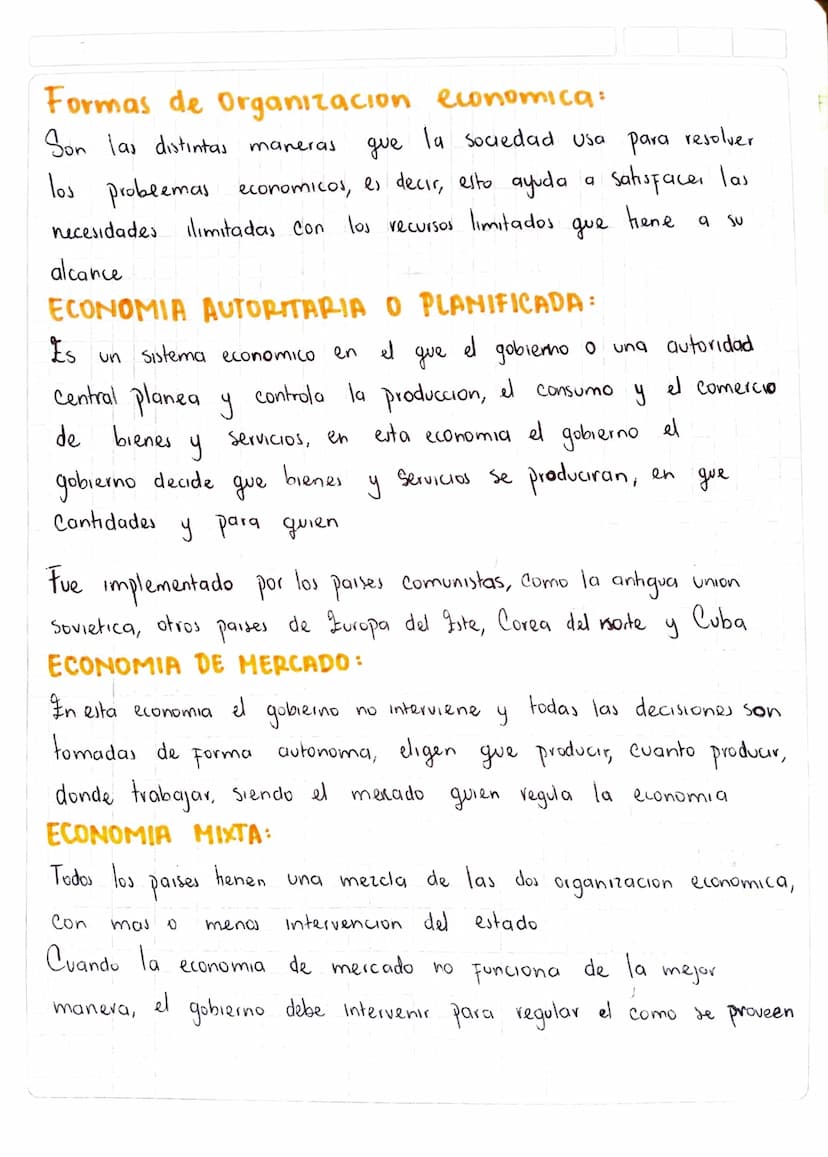 Formas de organizacion economica:
Son las distintas maneras que la sociedad usa para resolver
los probeemas economicos, es decir, esto ayuda a satisfacer las
necesidades ilimitadas con los recursos limitados que tiene a su
alcance
ECONOMIA AUTORITARIA O PLANIFICADA:
Es un sistema economico en el que el gobierno o una autoridad
central planea y controla la produccion, el consumo y el comercio
de bienes y servicios, en esta economia el gobierno el
gobierno decide que bienes y servicios se produciran, en que
cantidades y para quien
Fue implementado por los paises comunistas, como la antigua union
sovietica, otros paises de Europa del Este, Corea del norte y Cuba
ECONOMIA DE MERCADO:
En esta economia el gobierno no interviene y todas las decisiones son
tomadas de forma autonoma, eligen que producir, cuanto producir,
donde trabajar, siendo el mercado quien regula la economia
ECONOMIA MIXTA:
Todos los paises tienen una mezcla de las dos organizacion economica,
con mas o menos intervencion del estado
Cuando la economia de mercado no funciona de la mejor
manera, el gobierno debe intervenir para regular el como se proveen